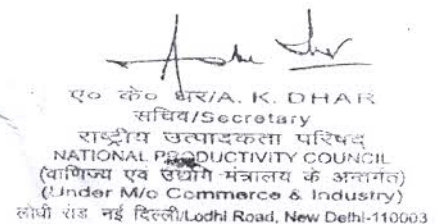 ए० के० धर/A. K. DHAR
सचिव/Secretary
राष्ट्रीय उत्पादकता परिषद
NATIONAL PRODUCTIVITY COUNCIL
(वाणिज्य एवं उद्योग मंत्रालय के अन्तर्गत)
(Under M/o Commerce & Industry)
लोधी रोड नई दिल्ली/Lodhi Road, New Delhi-110003